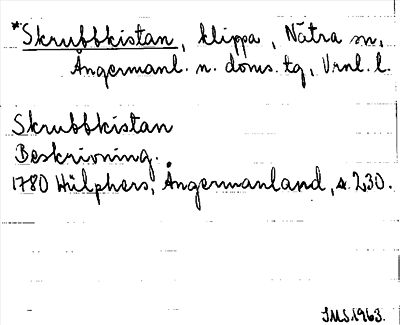 *Skrubbkistan, klippa, Nätra sn,
Ångermanl. n. doms. tg, Vrnl. l.
Skrubbkistan
Beskrivning.
1780 Hülphers, Ångermanland, s. 230.
IMS.1963.